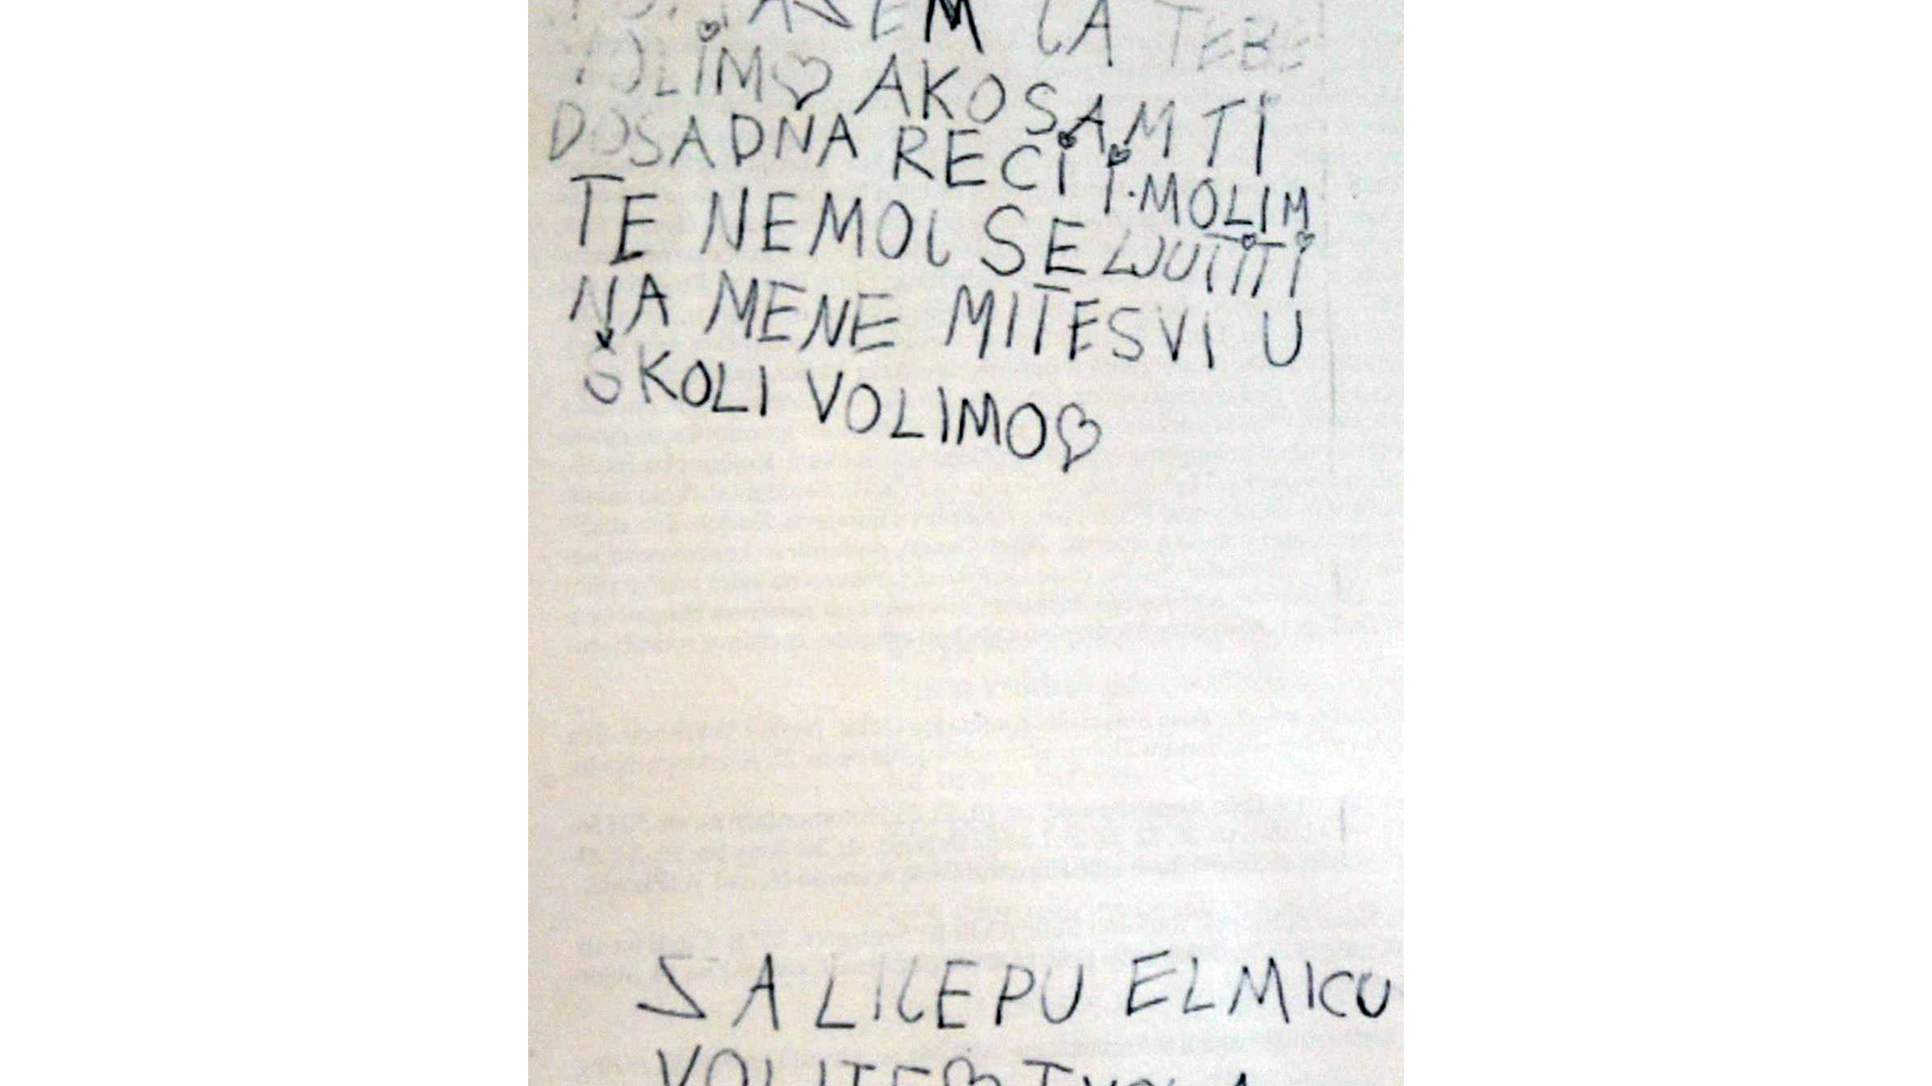 JA TEBE
VOLIM♡ AKO SAM TI
DOSADNA RECI I MOLIM
TE NEMOJ SE LJUTITI
NA MENE MI TE SVI U
ŠKOLI VOLIMO♡
ZA LIJEPU ELMICU
VOLI TE♡ TVOJA